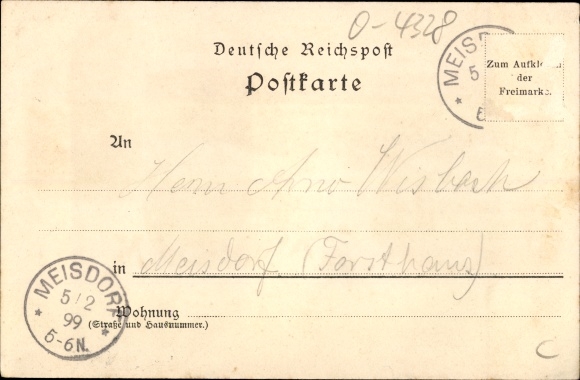 O-4328
Deutsche Reichspost
Postkarte
MEISD
5
Zum Aufkle
der
Freimarke.
An
Herrn Arno Wisbach
in Meisdorf (Forsthaus)
MEISDORF
5/2
99
5-6N.
Wohnung
(Straße und Hausnummer.)
C